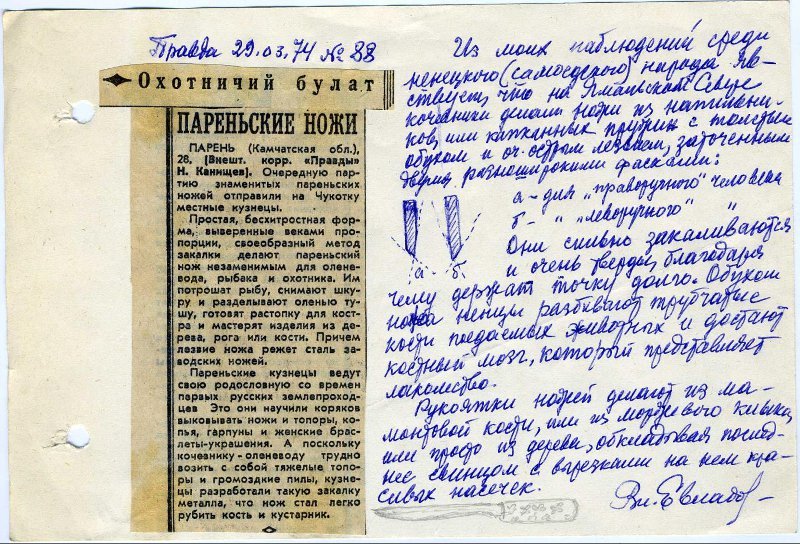 Правда 29.03.74 № 88
Охотничий булат
ПАРЕНЬСКИЕ НОЖИ
ПАРЕНЬ (Камчатская обл.),
28. (Внешт. корр. «Правды»
Н. Канищев). Очередную пар-
тию знаменитых пареньских
ножей отправили на Чукотку
местные кузнецы.
Простая, бесхитростная фор-
ма, выверенные веками про-
порции, своеобразный метод
закалки делают пареньский
нож незаменимым для олене-
вода, рыбака и охотника. Им
потрошат рыбу, снимают шку-
ру и разделывают оленью ту-
шу, готовят растопку для кост-
ра и мастерят изделия из де-
рева, рога или кости. Причем
лезвие ножа режет сталь за-
водских ножей.
Пареньские кузнецы ведут
свою родословную со времен
первых русских землепроход-
цев. Это они научили коряков
выковывать ножи и топоры, ко-
пья, гарпуны и женские брас-
леты-украшения. А поскольку
кочевнику-оленеводу трудно
возить с собой тяжелые топо-
ры и громоздкие пилы, кузне-
цы разработали такую закалку
металла, что нож стал легко
рубить кость и кустарник.
Из моих наблюдений среди
ненецкого (самоедского) народа яв-
ствует, что на Ямальском Севере
кочевники делают ножи из напильни-
ков, или капканных пружин с толстым
обухом и оч. острым лезвием, заточенным
двумя разноширокими фасками:
а - для "праворучного" человека
б - " "леворучного" "
а- б-
Они сильно закаливаются
и очень тверды, благодаря
чему держат точку долго. Обухом
ножа ненцы разбивают трубчатые
кости поедаемых животных и достают
костный мозг, который представляет
лакомство.
Рукоятки ножей делают из ма-
монтовой кости, или из моржового клыка,
или просто из дерева, обкладывая послед-
нее свинцом с вырезками на нем кра-
сивых насечек.
Вл. Евладов